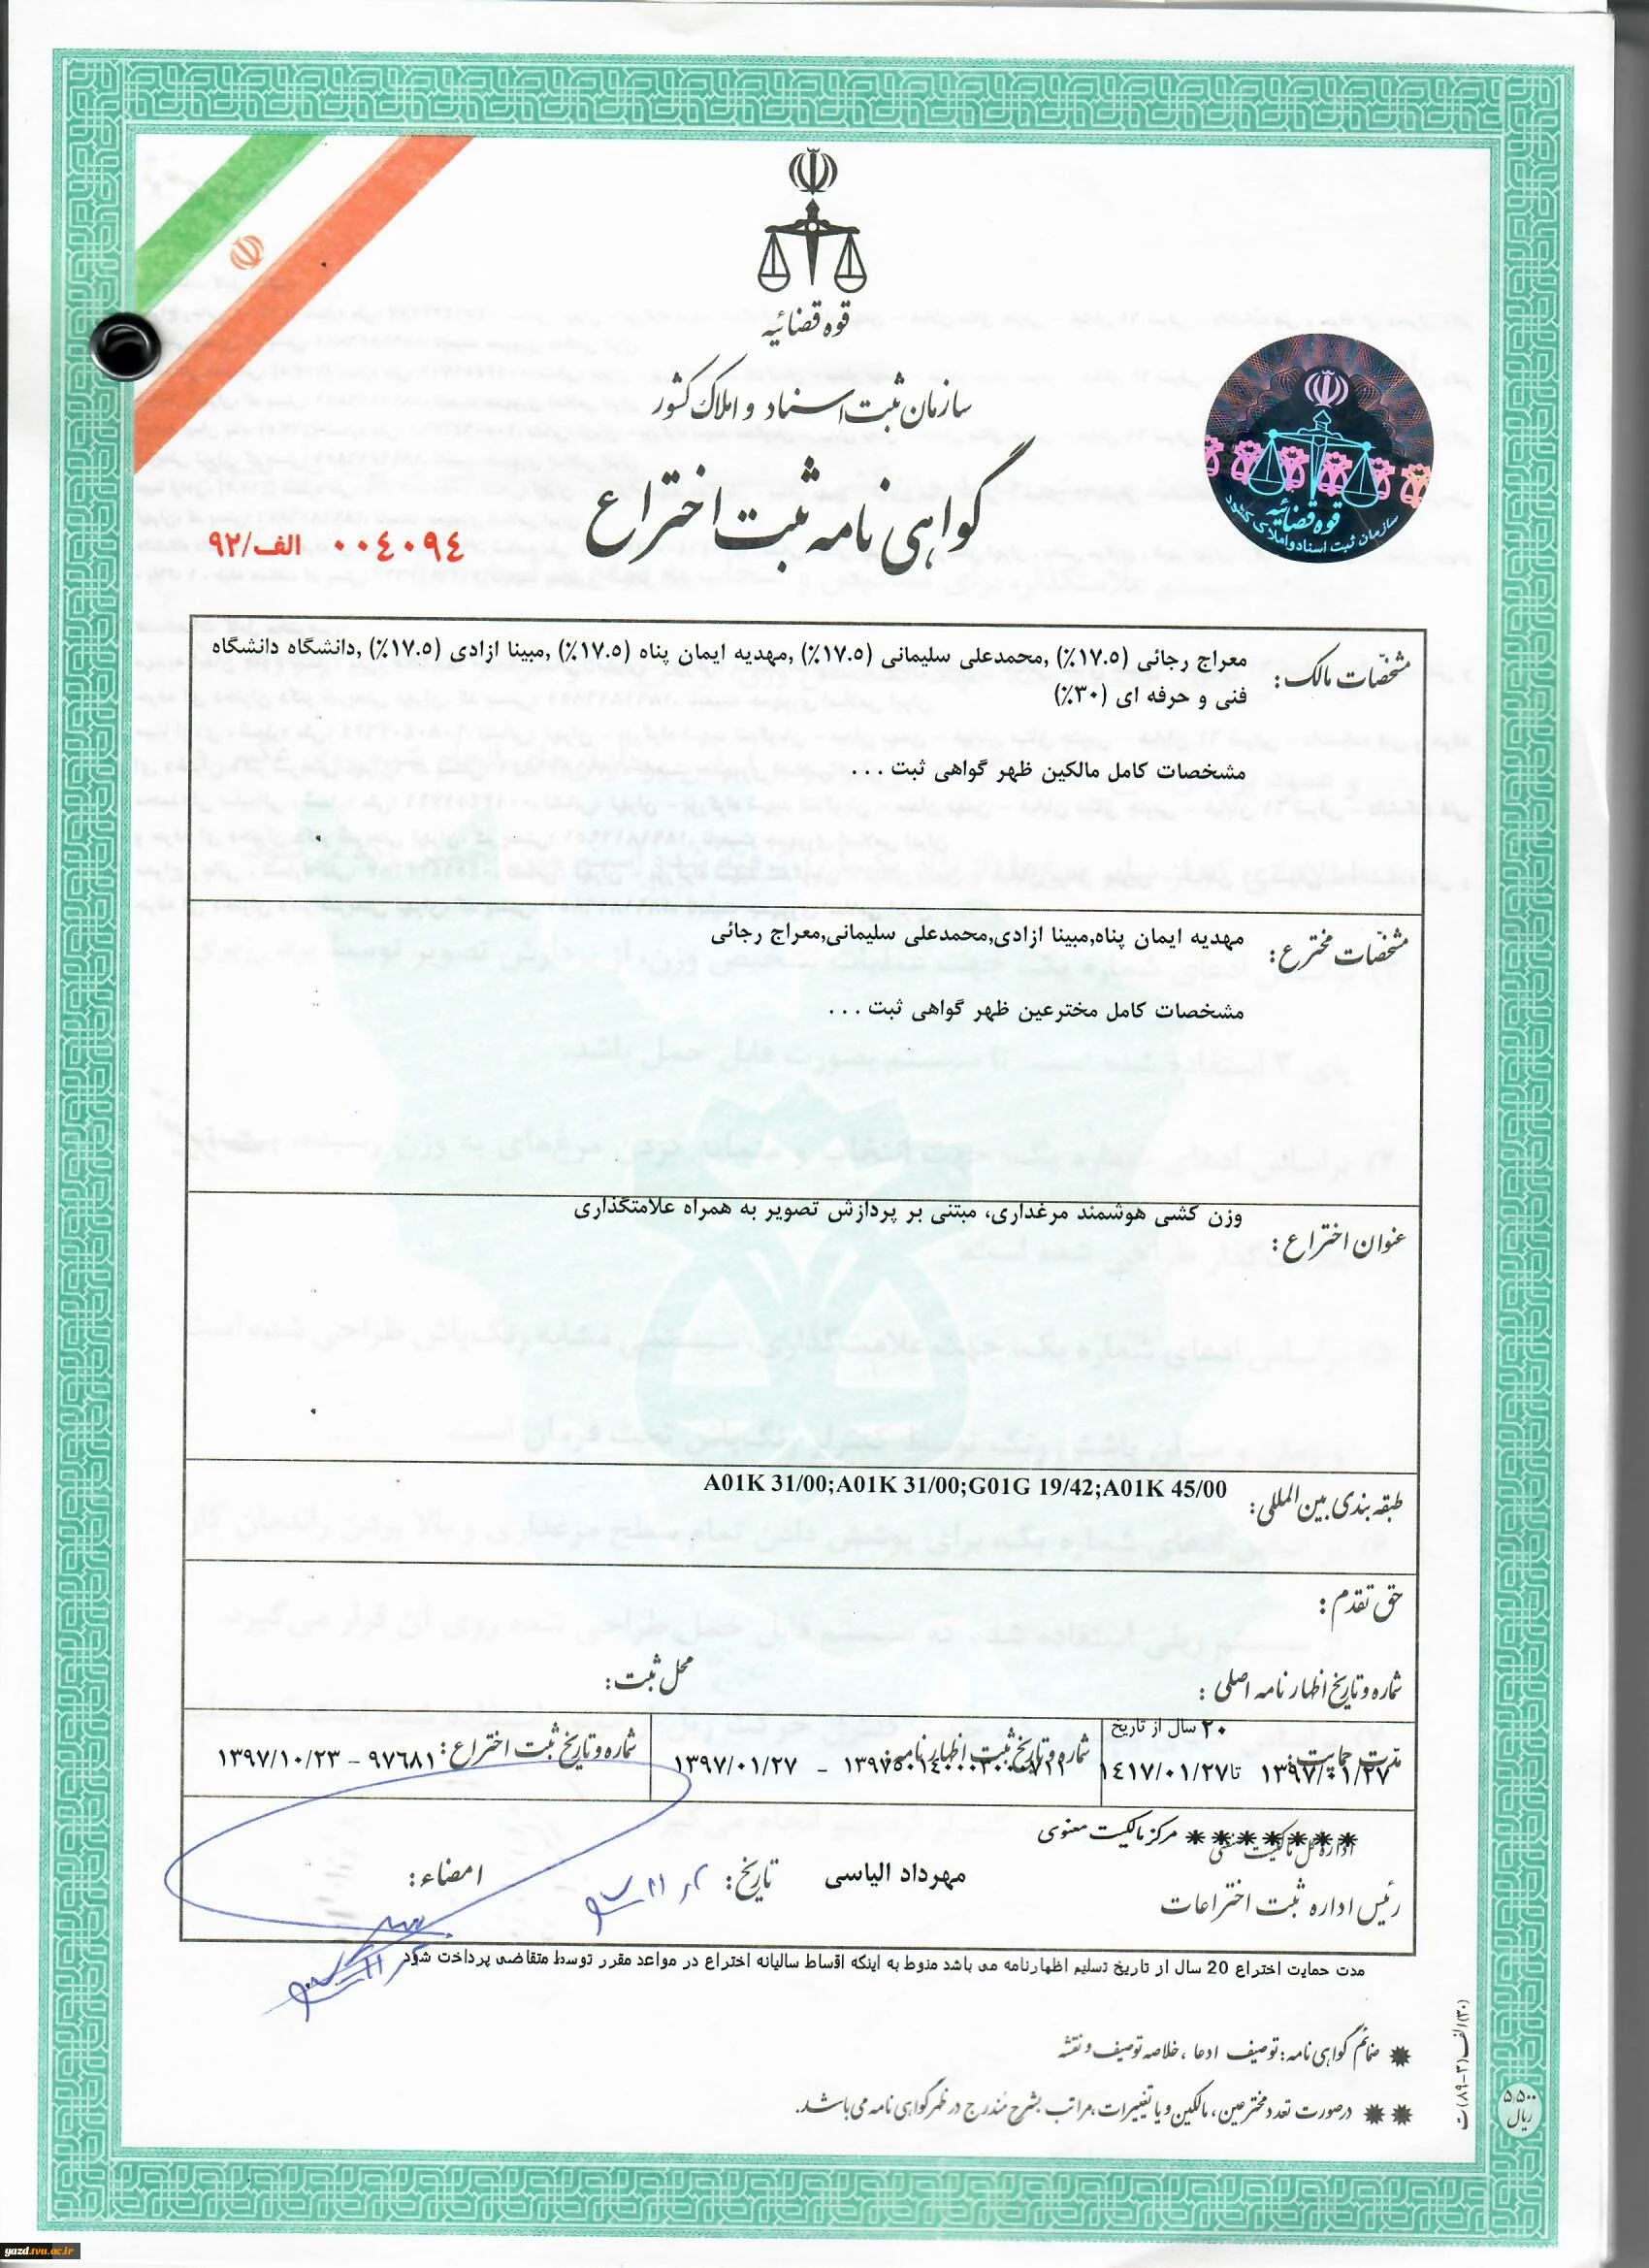 قوه قضائیه
سازمان ثبت اسناد و املاک کشور
گواهی نامه ثبت اختراع
۰۰٤۰۹٤ الف/۹۲
قوه قضائیه
سازمان ثبت اسناد و املاک کشور
مشخّصات مالک: معراج رجائی (۱۷.۵٪) ,محمدعلی سلیمانی (۱۷.۵٪) ,مهدیه ایمان پناه (۱۷.۵٪) ,مبینا ازادی (۱۷.۵٪) ,دانشگاه دانشگاه
فنی و حرفه ای (۳۰٪)
مشخصات کامل مالکین ظهر گواهی ثبت ...
مشخّصات مخترع: مهدیه ایمان پناه,مبینا ازادی,محمدعلی سلیمانی,معراج رجائی
مشخصات کامل مخترعین ظهر گواهی ثبت ...
عنوان اختراع: وزن کشی هوشمند مرغداری، مبتنی بر پردازش تصویر به همراه علامتگذاری
طبقه بندی بین المللی: A01K 31/00;A01K 31/00;G01G 19/42;A01K 45/00
حق تقدم:
شماره و تاریخ اظهارنامه اصلی: محل ثبت:
۲۰ سال از تاریخ
مدّت حمایت: ۱۳۹۷/۰۱/۲۷ تا ۱٤۱۷/۰۱/۲۷
شماره و تاریخ ثبت اظهارنامه: - ۱۳۹۷/۰۱/۲۷
شماره و تاریخ ثبت اختراع: ۹۷٦۸۱ - ۱۳۹۷/۱۰/۲۳
اداره کل مالکیت صنعتی ******* مرکز مالکیت معنوی
رئیس اداره ثبت اختراعات مهرداد الیاسی تاریخ: امضاء:
مدت حمایت اختراع 20 سال از تاریخ تسلیم اظهارنامه می باشد منوط به اینکه اقساط سالیانه اختراع در مواعد مقرر توسط متقاضی پرداخت شود
ضمائم گواهی نامه: توصیف ادعا ، خلاصه توصیف و نقشه
درصورت تعدد مخترعین، مالکین و یا تغییرات، مراتب بشرح مندرج در ظهر گواهی نامه می باشد.
۵,۵۰۰
ریال
yazd.tvu.ac.ir